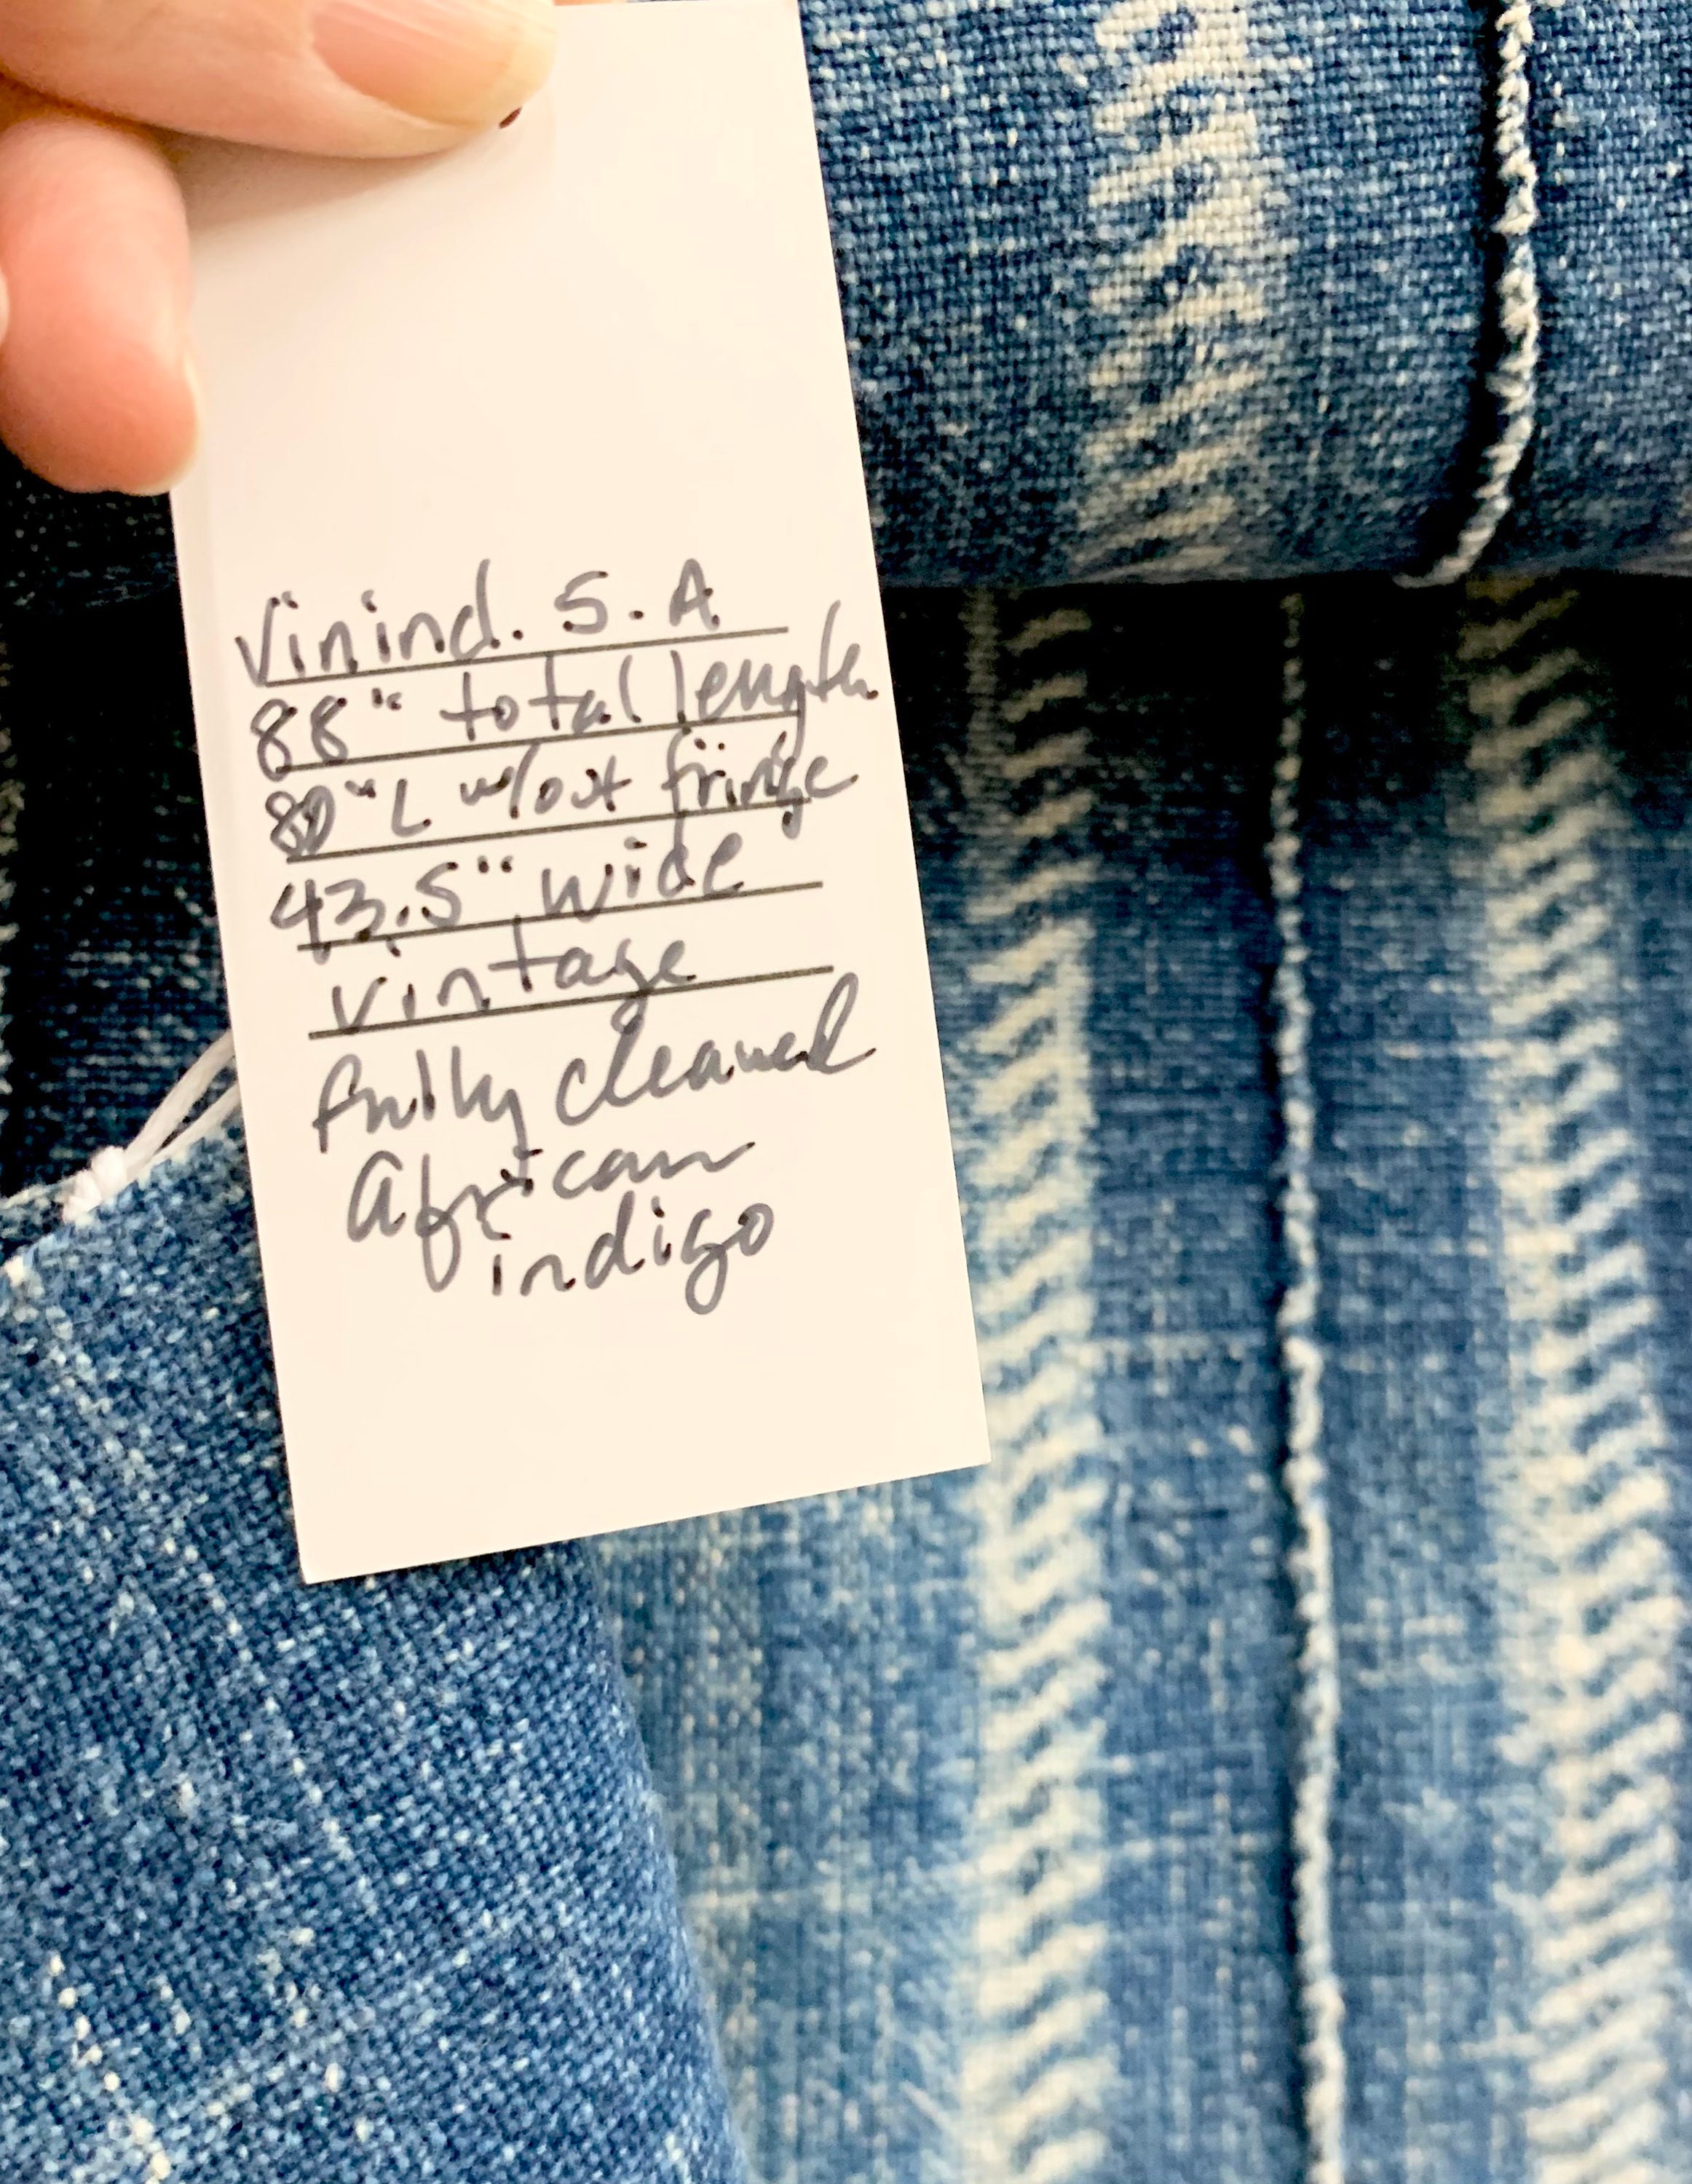 Vinind. S.A
88" total length
80" L w/out fringe
43.5" wide
vintage
fully cleaned
African
indigo